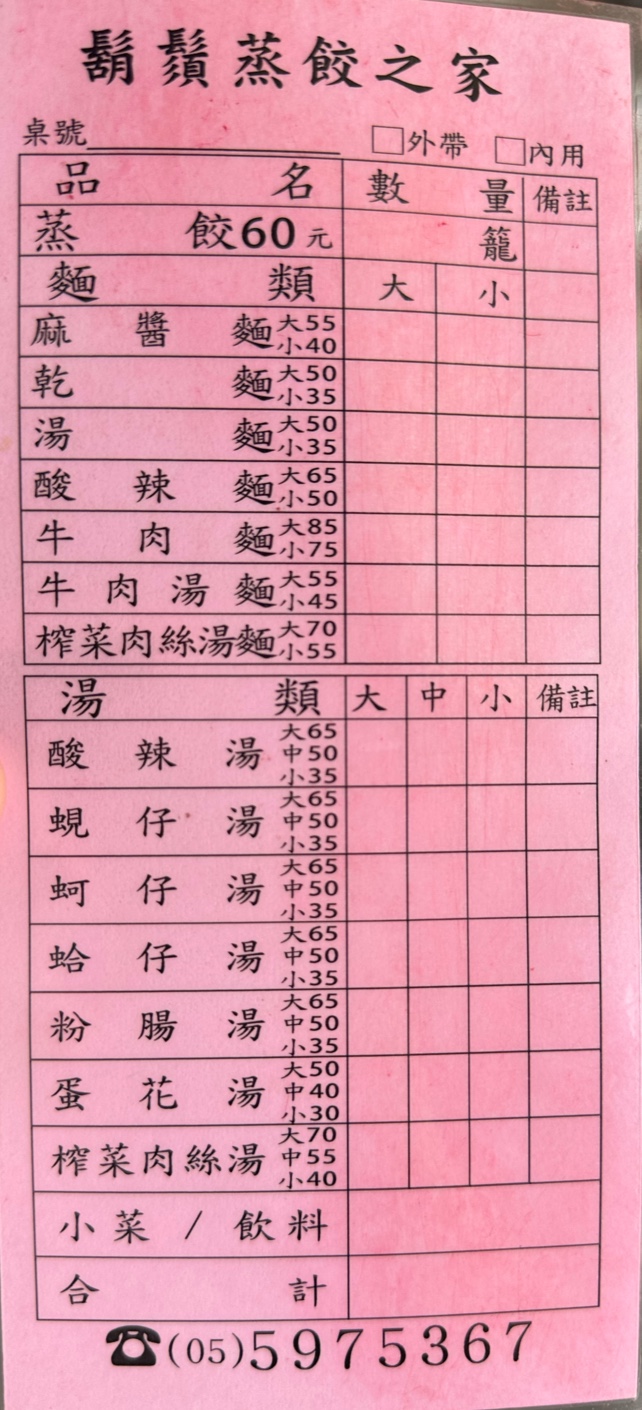 鬍鬚蒸餃之家
桌號 □外帶 □內用
品名 數量 備註
蒸餃60元 籠
麵類 大 小
麻醬麵 大55 小40
乾麵 大50 小35
湯麵 大50 小35
酸辣麵 大65 小50
牛肉麵 大85 小75
牛肉湯麵 大55 小45
榨菜肉絲湯麵 大70 小55
湯類 大 中 小 備註
酸辣湯 大65 中50 小35
蜆仔湯 大65 中50 小35
蚵仔湯 大65 中50 小35
蛤仔湯 大65 中50 小35
粉腸湯 大65 中50 小35
蛋花湯 大50 中40 小30
榨菜肉絲湯 大70 中55 小40
小菜/飲料
合計
☎(05)5975367